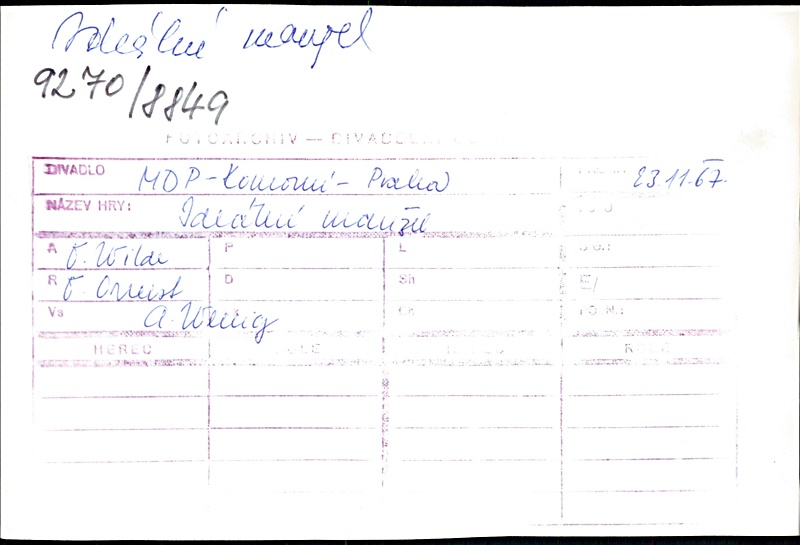 Ideální manžel
9270/8849
FOTOARCHIV — DIVADELNÍ
DIVADLO MDP-Komorní-Praha 23.11.67.
NÁZEV HRY: Ideální manžel
A O. Wilde P L
R O. Ornest D Sh
Vs A. Wenig
HEREC ROLE